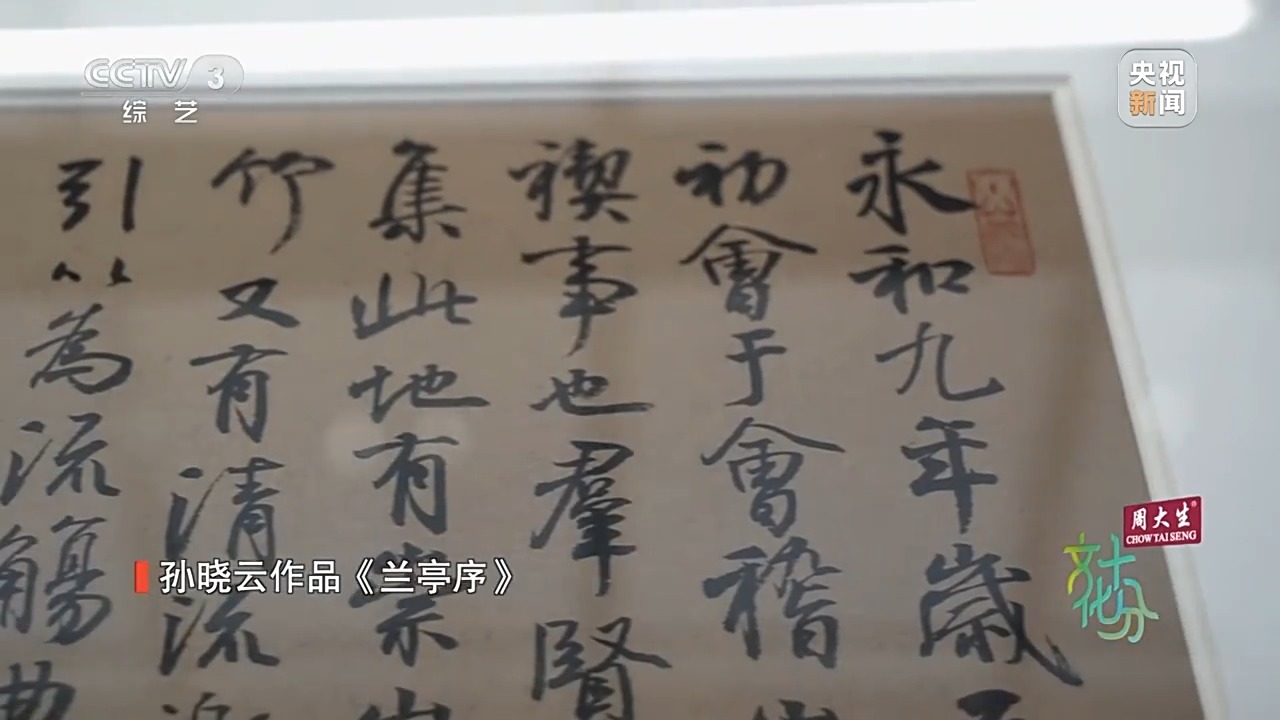 CCTV 3
综艺
央视
新闻
永和九年歲
初會于會稽山
禊事也羣賢
集此地有崇山
竹又有清流
引以為流觴曲
孙晓云作品《兰亭序》
周大生
CHOW TAI SENG
文化十分